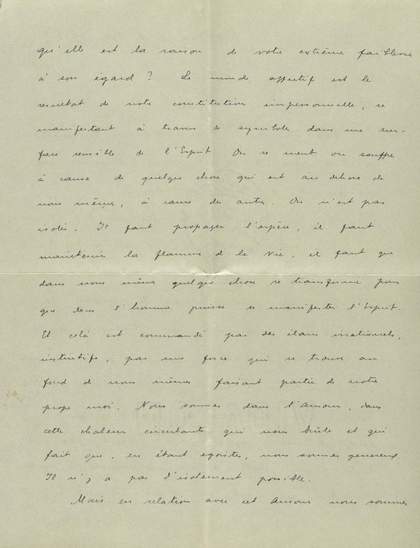 qu'elle est la raison de votre extrême faiblesse
à son égard? Le monde affectif est le
resultat de notre constitution impersonnelle, se
manifestant à travers le symbole dans une sur-
face sensible de l'Esprit. On se meut on souffre
à cause de quelque chose qui est au dehors de
nous mêmes, à cause des autres. On n'est pas
isolés. Il faut propager l'espèce, il faut
maintenir la flamme de la vie, il faut que
dans nous même quelque chose se transforme pour
que dans l'homme puisse se manifester l'Esprit.
Et celà est commandé par des élans irrationels,
instinctifs, par une force qui se trouve au
fond de nous mêmes faisant partie de notre
propre moi. Nous sommes dans l'Amour, dans
cette chaleur circulante qui nous brûle et qui
fait que, en étant egoistes, nous sommes genereux.
Il n'y a pas d'isolement possible.
Mais en relation avec cet Amour nous sommes